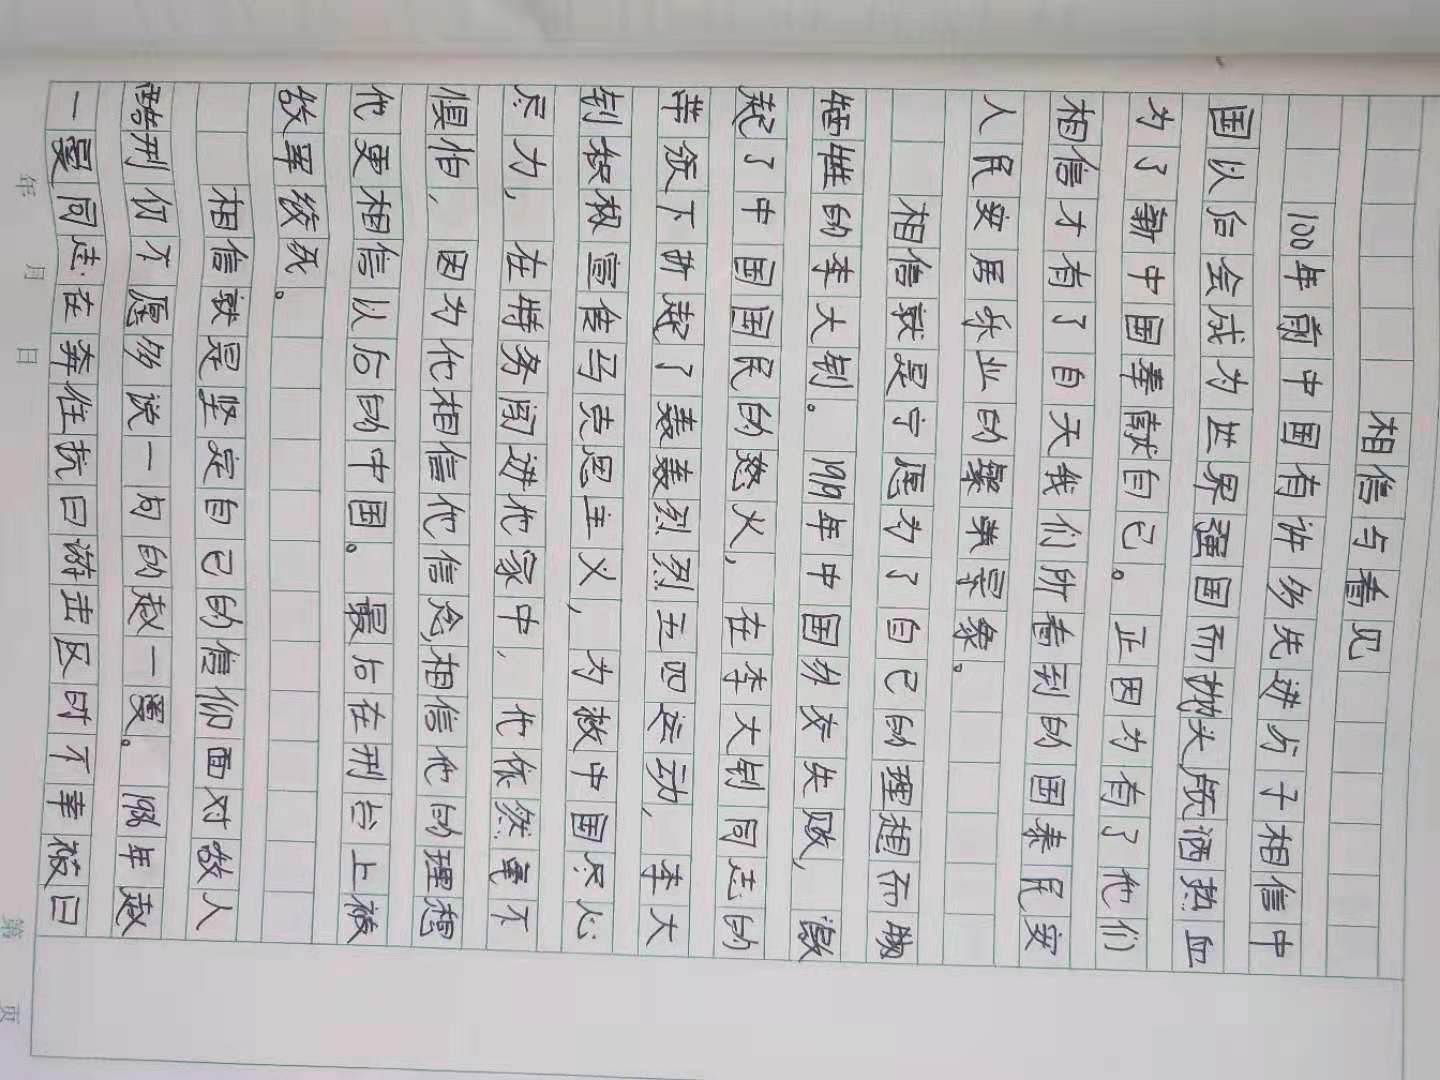 相信与看见
100年前中国有许多先进分子相信中
国以后会成为世界强国而抛头颅洒热血
为了新中国奉献自己。正因为有了他们
相信才有了自天我们所看到的国泰民安
人民安居乐业的繁荣景象。
相信就是宁愿为了自己的理想而牺
牺牲的李大钊。1919年中国外交失败,激
起了中国国民的怒火,在李大钊同志的
带领下掀起了轰轰烈烈五四运动,李大
钊积极宣传马克思主义,为救中国尽心
尽力,在特务闯进他家中,他依然毫不
惧怕,因为他相信他信念,相信他的理想
他更相信以后的中国。最后在刑台上被
敌军绞死。
相信就是坚定自己的信仰面对敌人
酷刑何不愿多说一句的赵一曼。1936年赵
一曼同志在奔往抗日游击区时不幸被日
年 月 日
第 页